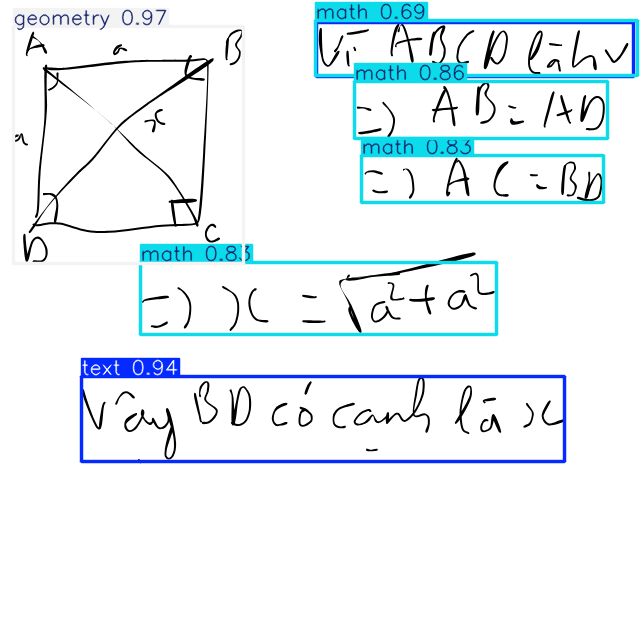 geometry 0.97
A a B
a x
D C
math 0.69
Vì ABCD là hv
math 0.86
=> AB = AD
math 0.83
=> AC = BD
math 0.83
=> x = √a²+a²
text 0.94
Vậy BD có cạnh là x